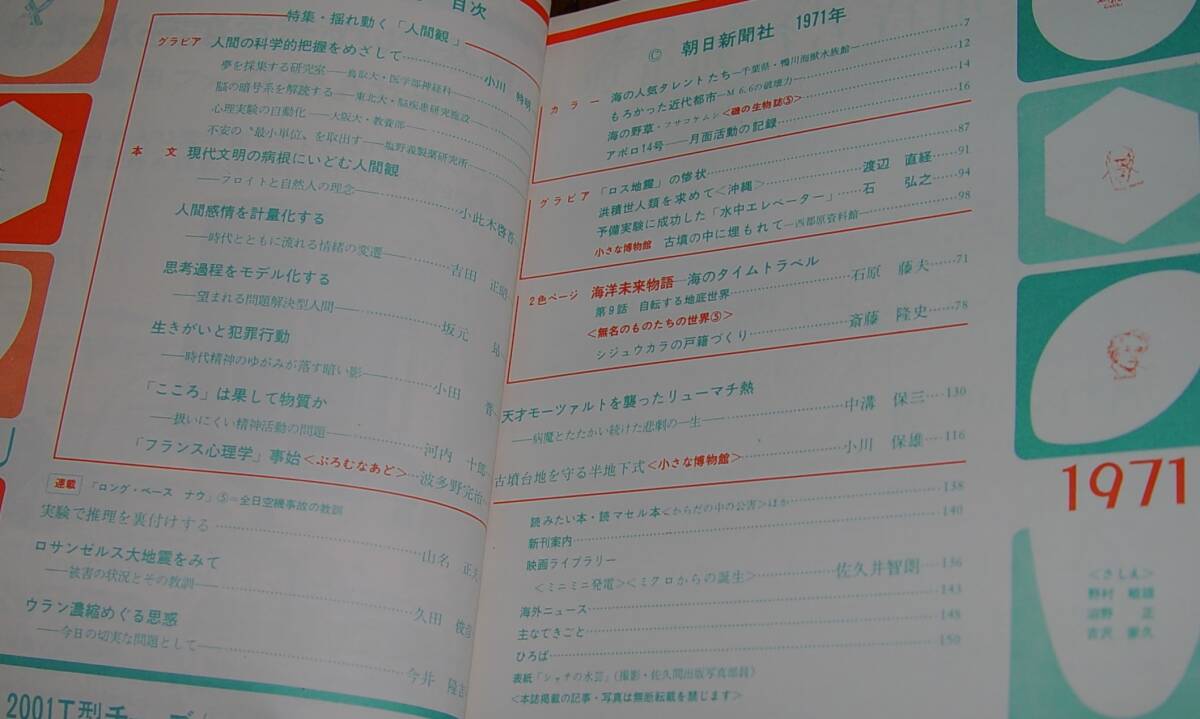 目次
特集・揺れ動く「人間観」
グラビア 人間の科学的把握をめざして 小川
夢を採集する研究室——鳥取大・医学部神経科——
脳の暗号系を解読する——東北大・脳疾患研究施設
心理実験の自動化——大阪大・教養部——
不安の“最小単位”を取出す——塩野義製薬研究所——
本文 現代文明の病根にいどむ人間観
——フロイトと自然人の理念—— 小此木啓吾
人間感情を計量化する
——時代とともに流れる情緒の変遷—— 吉田 正昭
思考過程をモデル化する
——望まれる問題解決型人間—— 坂元 昻
生きがいと犯罪行動
——時代精神のゆがみが落す暗い影—— 小田 晋
「こころ」は果して物質か
——扱いにくい精神活動の問題—— 河内 十郎
「フランス心理学」事始<ぷろむなあど> 波多野完治
連載 「ロング・ベース ナウ」⑤=全日空機事故の教訓
実験で推理を裏付けする 山名 正夫
ロサンゼルス大地震をみて
——被害の状況とその教訓—— 久田 俊彦
ウラン濃縮めぐる思惑
——今日の切実な問題として—— 今井 隆吉
2001T型
© 朝日新聞社 1971年
カラー 海の人気タレントたち—千葉県・鴨川海獣水族館— 7
もろかった近代都市—M6.6の破壊力— 12
海の野草・フサコケムシ<磯の生物誌③> 14
アポロ14号——月面活動の記録 16
グラビア 「ロス地震」の惨状 87
洪積世人類を求めて<沖縄> 渡辺 直経 91
予備実験に成功した「水中エレベーター」 石 弘之 94
小さな博物館 古墳の中に埋もれて—西都原資料館— 98
2色ページ 海洋未来物語—海のタイムトラベル
第9話 自転する地底世界 石原 藤夫 71
<無名のものたちの世界③>
シジュウカラの戸籍づくり 斎藤 隆史 78
天才モーツァルトを襲ったリューマチ熱
——病魔とたたかい続けた悲劇の一生—— 中溝 保三 130
古墳台地を守る半地下式<小さな博物館> 小川 保雄 116
読みたい本・読マセル本<からだの中の公害>ほか 138
新刊案内 140
映画ライブラリー
<ミニミニ発電><ミクロからの誕生> 佐久井智朗 136
海外ニュース 143
主なできごと 148
ひろば 150
表紙「シャチの水芸」(撮影・佐久間出版写真部員)
<本誌掲載の記事・写真は無断転載を禁じます>
1971
<さしえ>
野村
沼野 正
吉沢